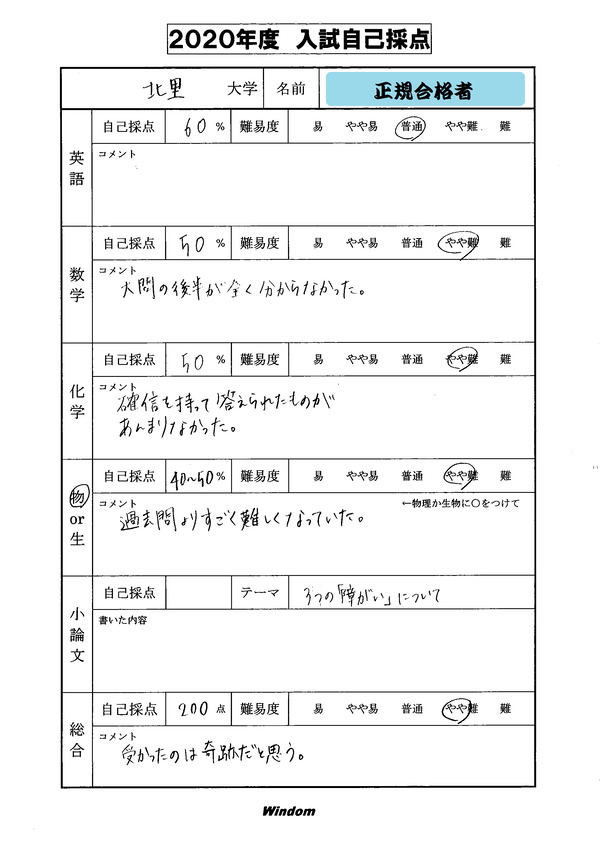 2020年度 入試自己採点
北里 大学 名前 正規合格者
英語
自己採点 60 % 難易度 易 やや易 普通 やや難 難
コメント
数学
自己採点 50 % 難易度 易 やや易 普通 やや難 難
コメント
大問の後半が全く分からなかった。
化学
自己採点 50 % 難易度 易 やや易 普通 やや難 難
コメント
確信を持って答えられたものが
あんまりなかった。
物or生
自己採点 40~50 % 難易度 易 やや易 普通 やや難 難
コメント ←物理か生物に○をつけて
過去問よりすごく難しくなっていた。
小論文
自己採点 テーマ 3つの「障がい」について
書いた内容
総合
自己採点 200 点 難易度 易 やや易 普通 やや難 難
コメント
受かったのは奇跡だと思う。
Windom